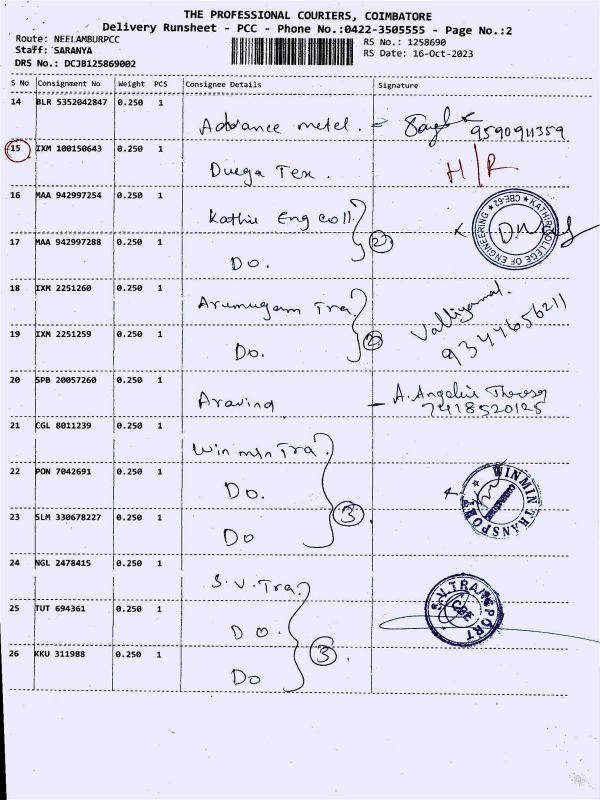 THE PROFESSIONAL COURIERS, COIMBATORE
Delivery Runsheet - PCC - Phone No.:0422-3505555 - Page No.:2
Route: NEELAMBURPCC RS No.: 1258690
Staff: SARANYA RS Date: 16-Oct-2023
DRS No.: DCJB125869002
S No Consignment No Weight PCS Consignee Details Signature
14 BLR 5352042847 0.250 1
Advance metel. 9590911359
15 IXM 100150643 0.250 1
Durga Tex. H/R
16 MAA 942997254 0.250 1
Kathir Eng coll. 2
KATHIR COLLEGE OF ENGINEERING ★ CBE-62 ★
17 MAA 942997288 0.250 1
Do.
18 IXM 2251260 0.250 1
Arumugam Tra. 2 Valliyamal.
9344656211
19 IXM 2251259 0.250 1
Do.
20 SPB 20057260 0.250 1
Aravind - A. Angelin Theresa
7418520125
21 CGL 8011239 0.250 1
Win min Tra.
22 PON 7042691 0.250 1
Do. 3 WINMIN TRANSPORT
23 SLM 330678227 0.250 1
Do
24 NGL 2478415 0.250 1
S. V. Tra. S.V. TRANSPORT CBE
25 TUT 694361 0.250 1
Do. 3
26 KKU 311988 0.250 1
Do